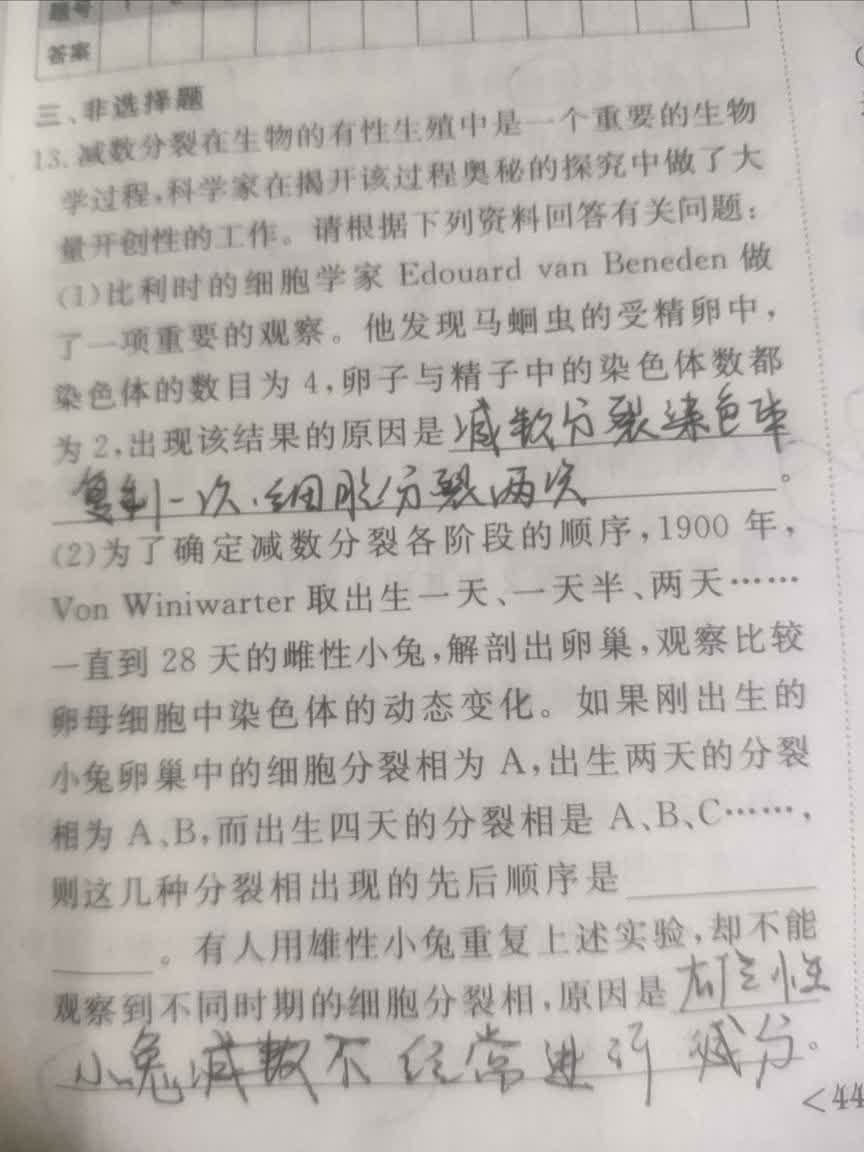 题号 1
答案
三、非选择题
13.减数分裂在生物的有性生殖中是一个重要的生物
学过程,科学家在揭开该过程奥秘的探究中做了大
量开创性的工作。请根据下列资料回答有关问题:
(1)比利时的细胞学家 Edouard van Beneden 做
了一项重要的观察。他发现马蛔虫的受精卵中,
染色体的数目为 4,卵子与精子中的染色体数都
为 2,出现该结果的原因是减数分裂染色体
复制一次.细胞分裂两次。
(2)为了确定减数分裂各阶段的顺序,1900 年,
Von Winiwarter 取出生一天、一天半、两天……
一直到 28 天的雌性小兔,解剖出卵巢,观察比较
卵母细胞中染色体的动态变化。如果刚出生的
小兔卵巢中的细胞分裂相为 A,出生两天的分裂
相为 A、B,而出生四天的分裂相是 A、B、C……,
则这几种分裂相出现的先后顺序是
。有人用雄性小兔重复上述实验,却不能
观察到不同时期的细胞分裂相,原因是雄性
小兔减数不经常进行减分。
<44